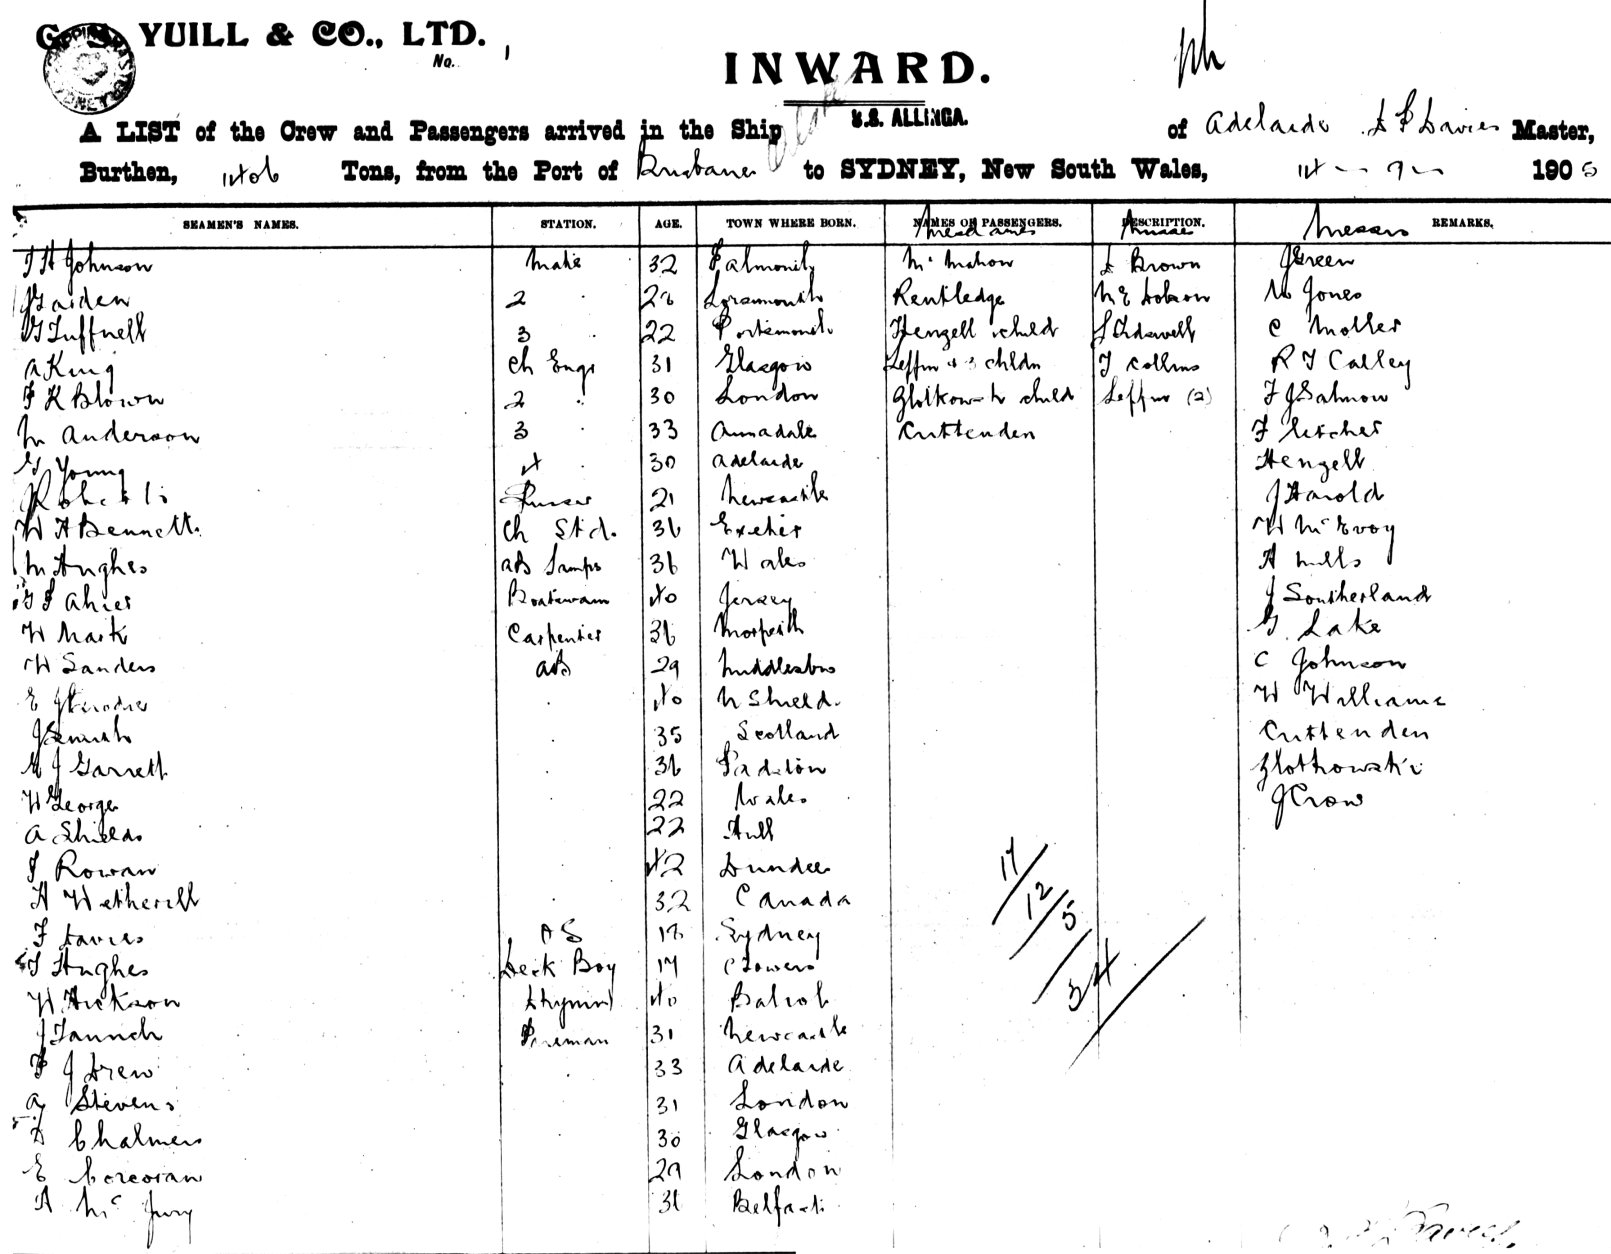 YUILL & CO., LTD.
No.
INWARD.
S.S. ALLINGA.
A LIST of the Crew and Passengers arrived in the Ship of Adelaide Davies Master,
Burthen, Tons, from the Port of Brisbane to SYDNEY, New South Wales, 190
SEAMEN'S NAMES. STATION. AGE. TOWN WHERE BORN. NAMES OF PASSENGERS. DESCRIPTION. REMARKS.
Mesdames Misses Messrs
Johnson Mate 32 Falmouth McMahon Brown J Green
2 Rentledge M E Dobson Jones
G Tuffnell 3 22 Portsmouth Hengell child C Moller
A King Ch Engr 31 Glasgow Leffin + 3 chldn Collins R T Calley
2 30 London child Leffin (2) F J Salmon
M Anderson 3 33 Annadale Cuttenden Fletcher
G Young 4 30 Adelaide Hengell
Roberts Purser 21 Newcastle J Harold
W H Bennett Ch Std. 36 Exeter W McEvoy
M Hughes AB Lamps 36 Wales H Mills
G F Ahier Boatswain 40 Jersey J Southerland
W Mark Carpenter 36 Morpeth G Lake
W Sanders AB 29 Middlesbro C Johnson
E 40 N Shield W Williams
J Smith 35 Scotland Cuttenden
J Garrett 36 Padstow Zlotkowski
W George 22 Wales J Crow
A Shields 22 Hull
Rowan 42 Dundee
H Wetherill 32 Canada
F Davies OS 18 Sydney
Hughes Deck Boy 17 Clowers
W Hickson 40
J Fireman 31 Newcastle
F J Drew 33 Adelaide
A Stevens 31 London
Chalmers 30 Glasgow
E Corcoran 29 London
H McJury 36 Belfast
17/12/5/34